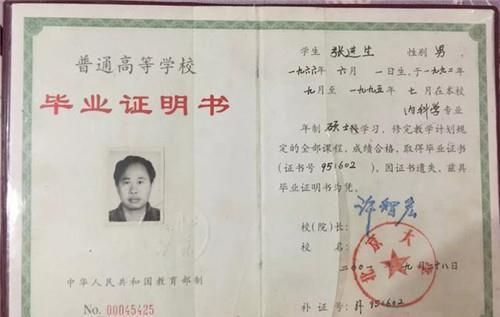 普通高等学校
毕业证明书
中华人民共和国教育部制
No. 00045425
学生 张进生 性别 男,
一九六六年 六 月 一 日生,于一九九二年
九 月至 一九九五 年 七 月在本校
内科学 专业
年制 硕士 学习,修完教学计划规
定的全部课程,成绩合格,取得毕业证书
(证书号 951602 )。因证书遗失,兹具
毕业证明书为凭。
校(院)长:
校 名:
北京大
二〇〇 年 九 月 二十八日
补 证 号: 951602